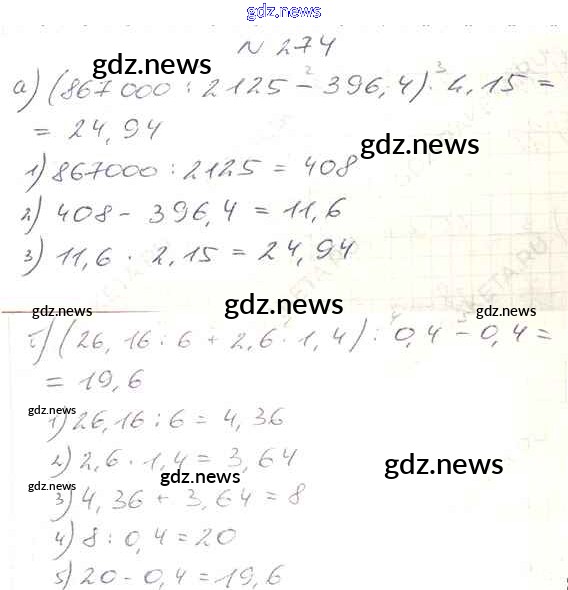 gdz.news
N 274
gdz.news
а) (867000 : 2125 - 396,4) · 2,15 =
= 24,94
gdz.news
1) 867000 : 2125 = 408
2) 408 - 396,4 = 11,6
3) 11,6 · 2,15 = 24,94
gdz.news gdz.news gdz.news
б) (26,16 : 6 + 2,6 · 1,4) : 0,4 - 0,4 =
= 19,6
gdz.news
1) 26,16 : 6 = 4,36
2) 2,6 · 1,4 = 3,64
gdz.news gdz.news gdz.news
3) 4,36 + 3,64 = 8
4) 8 : 0,4 = 20
5) 20 - 0,4 = 19,6
gdz.news